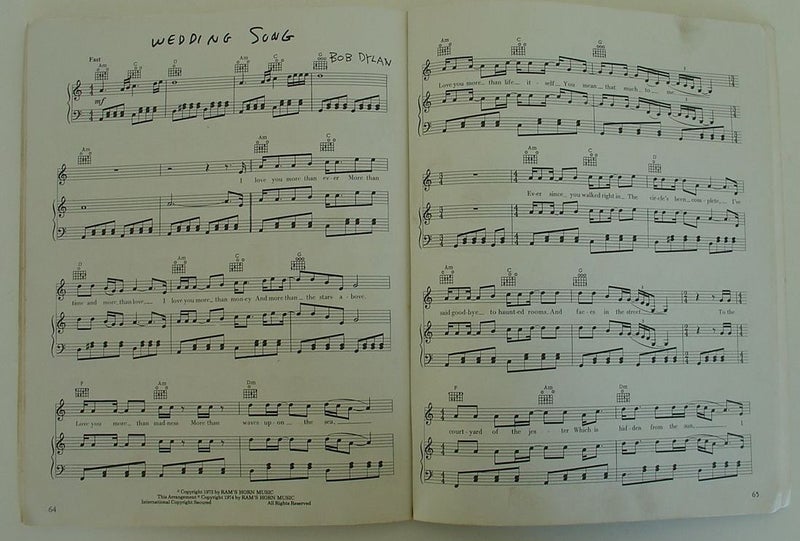 WEDDING SONG
BOB DYLAN
Fast
Am C D Am C G
mf
Am Am C
I love you more than ev-er More than
D Am C G
time and more_ than love,__ I love you more_ than mon-ey And more than__ the stars a-bove.
F Am Dm
Love you more_ than mad-ness More than waves up-on__ the sea,
© Copyright 1973 by RAM'S HORN MUSIC
This Arrangement © Copyright 1974 by RAM'S HORN MUSIC
International Copyright Secured All Rights Reserved
64
Am C G
Love you more_ than life_ it-self_ You mean_ that much_ to me.
Am C D
Ev-er since_ you walked right in_ The cir-cle's been_ com-plete,_ I've
Am C G
said good-bye_ to haunt-ed rooms_ And fac-es in the street To the
F Am Dm
court-yard of the jes-ter Which is hid-den from the sun, I
65